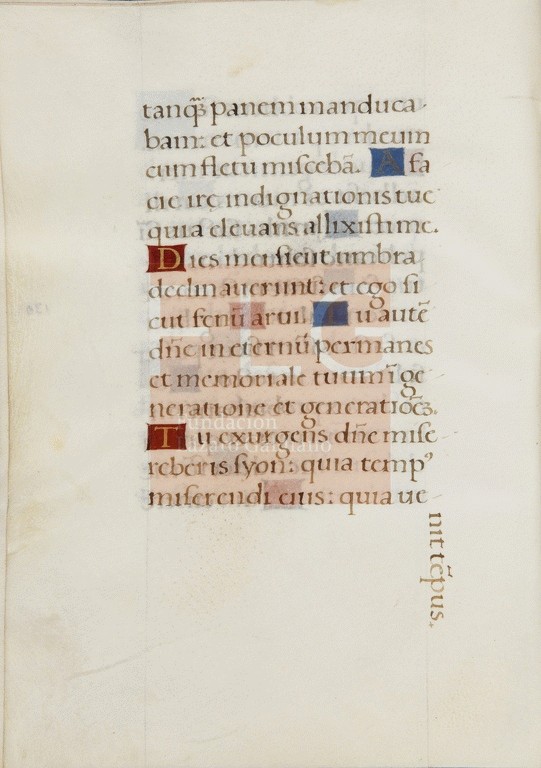 tanq̄ȝ panem manduca-
bam: et poculum meum
cum fletu miscebā. A fa
cie irę indignationis tue
quia elevans allixisti me.
Dies mei sicut umbra
declinaverunt: et ego si
cut fenū arui. Tu autē
dn̄e in eternū permanes
et memoriale tuum ī ge
neratione et generatiōeȝ.
Tu exurgens dn̄e mise
reberis syon: quia temp⁹
miserendi eius: quia ve
nit tēpus.
Fundación
Lázaro Galdiano